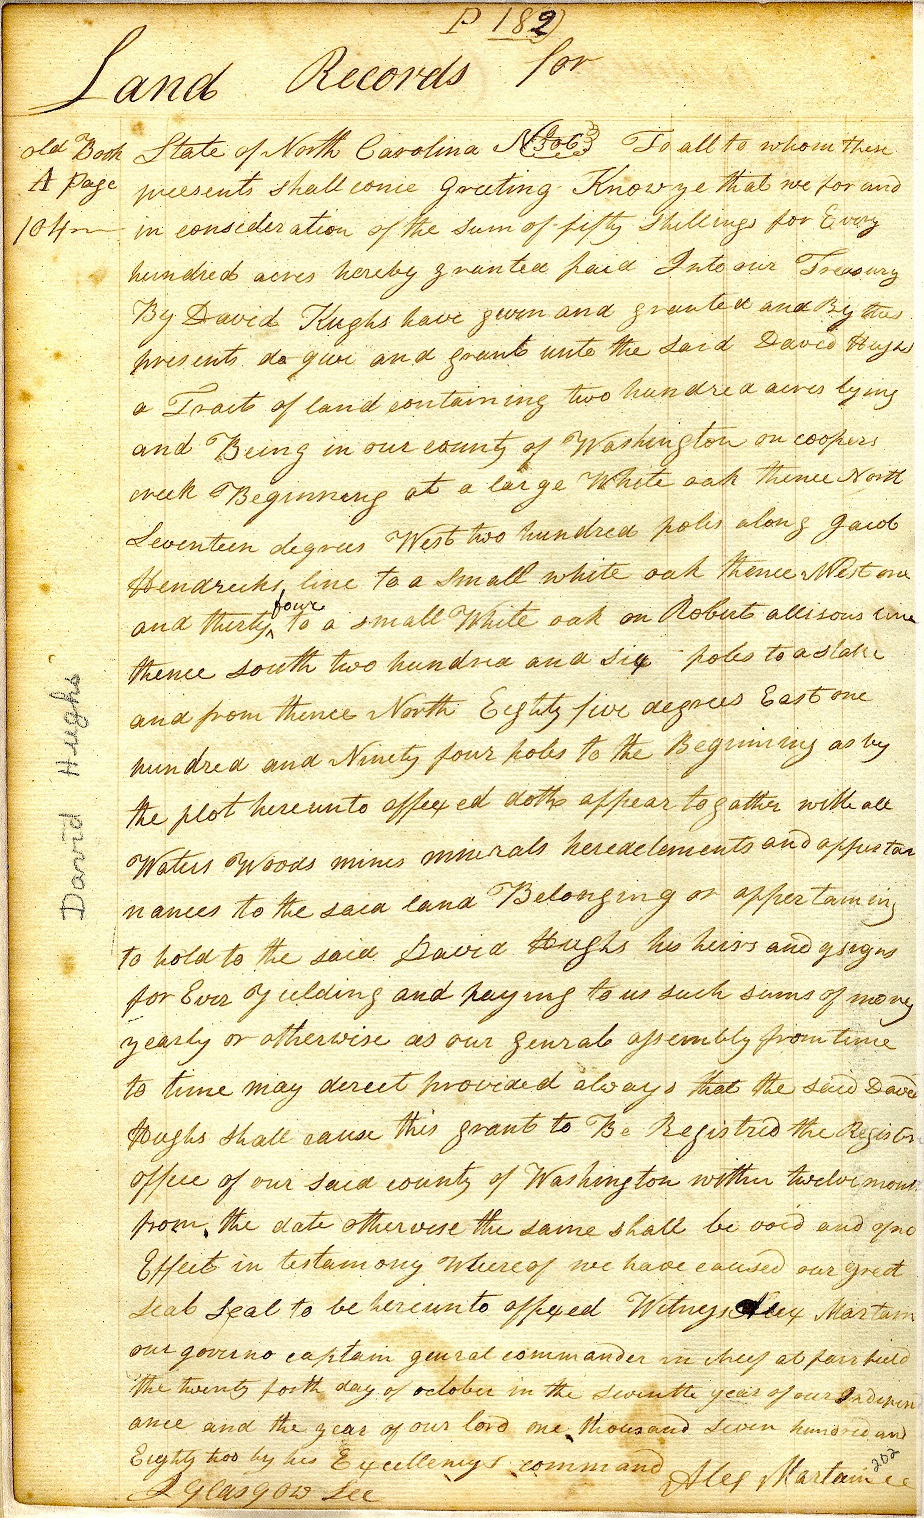 P 182
Land Records for
old Book
A Page
104
State of North Carolina No 306 To all to whom these
presents shall come Greeting Know ye that we for and
in consideration of the sum of fifty shillings for Every
hundred acres hereby granted paid Into our Treasury
By David Hughs have given and granted and By these
presents do give and grant unto the said David Hughs
a Tract of land containing two hundred acres lying
and Being in our county of Washington on coopers
creek Beginning at a large White oak thence North
Seventeen degrees West two hundred poles along Jacob
Hendricks line to a small white oak thence West one
and thirty four to a small White oak on Robert allisons line
thence south two hundred and six poles to a stake
and from thence North Eighty five degrees East one
hundred and Ninety four poles to the Beginning as by
the plot hereunto affexed doth appear togather with all
Waters Woods mines minerals heredelements and appurtan
nances to the said land Belonging or appertaining
to hold to the said David Hughs his heirs and asigns
for Ever yielding and paying to us such sums of money
yearly or otherwise as our genral assembly from time
to time may derect provided always that the said David
Hughs shall cause this grant to Be Registred the Registers
office of our said county of Washington within twelve mont
from the date otherwise the same shall be void and of no
Effect in testamony whereof we have caused our great
seal seal to be hereunto affexed Witness Alex Martain
our governo captain genral commander in cheef at fairfield
the twenty forth day of october in the seventh year of our Indepen
ance and the year of our lord one thousand seven hundred and
Eighty too by his Excellencys command
J Glasgow Sec
Alex Martain
202
David Hughs